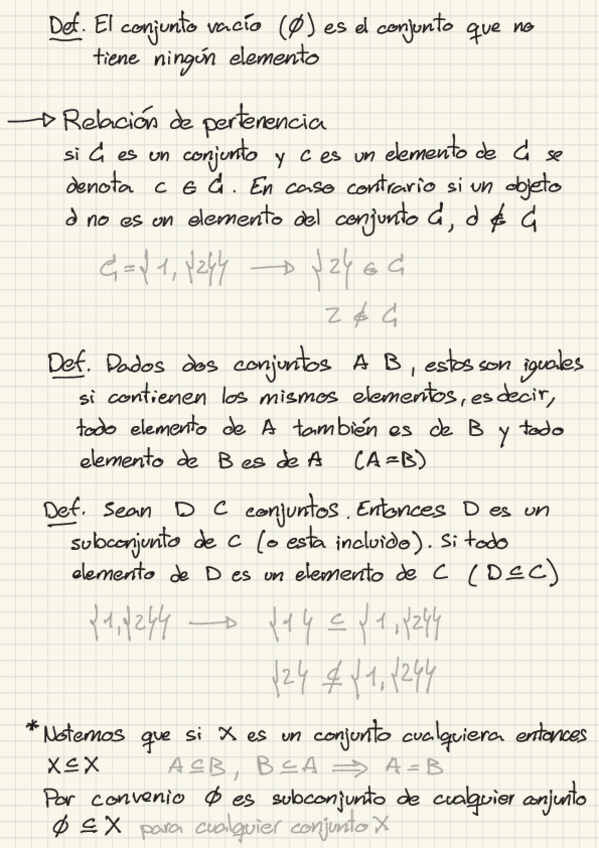 Def. El conjunto vacío (∅) es el conjunto que no
tiene ningún elemento
→ Relación de pertenencia
si C es un conjunto y c es un elemento de C se
denota c ∈ C. En caso contrario si un objeto
d no es un elemento del conjunto C, d ∉ C
C = {1, {2}} → {2} ∈ C
2 ∉ C
Def. Dados dos conjuntos A B, estos son iguales
si contienen los mismos elementos, es decir,
todo elemento de A también es de B y todo
elemento de B es de A (A=B)
Def. Sean D C conjuntos. Entonces D es un
subconjunto de C (o esta incluido). Si todo
elemento de D es un elemento de C (D⊆C)
{1,{2}} → {1} ⊆ {1,{2}}
{2} ⊈ {1,{2}}
* Notemos que si X es un conjunto cualquiera entonces
X⊆X A⊆B, B⊆A ⇒ A=B
Por convenio ∅ es subconjunto de cualquier conjunto
∅ ⊆ X para cualquier conjunto X